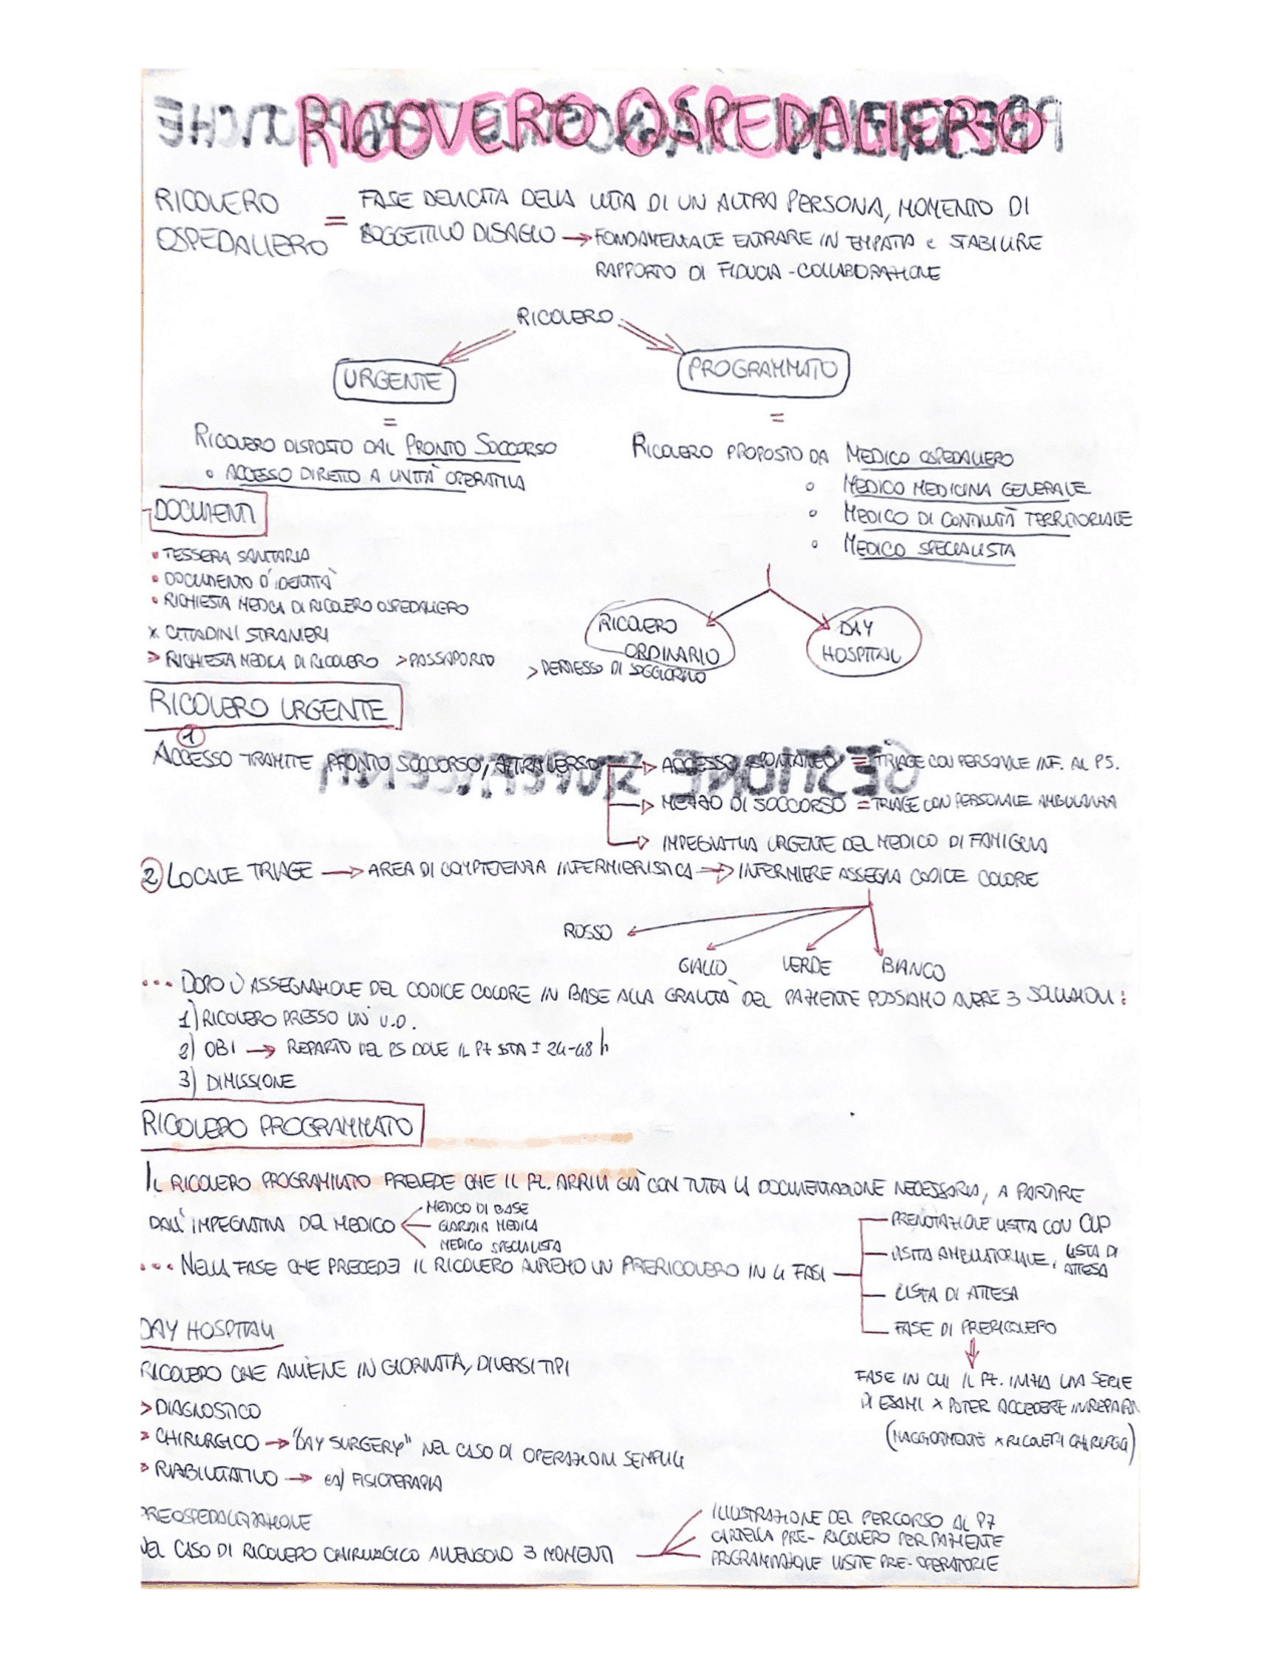 RICOVERO OSPEDALIERO
RICOVERO OSPEDALIERO = FASE DELICATA DELLA VITA DI UN ALTRA PERSONA, MOMENTO DI
SOGGETTIVO DISAGIO → FONDAMENTALE ENTRARE IN EMPATIA e STABILIRE
RAPPORTO DI FIDUCIA - COLLABORAZIONE
RICOVERO
URGENTE
PROGRAMMATO
=
=
RICOVERO DISPOSTO DAL PRONTO SOCCORSO
o ACCESSO DIRETTO A UNITÀ OPERATIVA
RICOVERO PROPOSTO DA MEDICO OSPEDALIERO
o MEDICO MEDICINA GENERALE
o MEDICO DI CONTINUITÀ TERRITORIALE
o MEDICO SPECIALISTA
RICOVERO ORDINARIO
DAY HOSPITAL
DOCUMENTI
• TESSERA SANITARIA
• DOCUMENTO D'IDENTITÀ
• RICHIESTA MEDICA DI RICOVERO OSPEDALIERO
x CITTADINI STRANIERI
> RICHIESTA MEDICA DI RICOVERO > PASSAPORTO > PERMESSO DI SOGGIORNO
RICOVERO URGENTE
1 ACCESSO TRAMITE PRONTO SOCCORSO, ATTRAVERSO
→ ACCESSO SPONTANEO = TRIAGE CON PERSONALE INF. AL PS.
→ MEZZO DI SOCCORSO = TRIAGE CON PERSONALE AMBULANZA
→ IMPEGNATIVA URGENTE DEL MEDICO DI FAMIGLIA
2 LOCALE TRIAGE → AREA DI COMPETENZA INFERMIERISTICA → INFERMIERE ASSEGNA CODICE COLORE
ROSSO
GIALLO
VERDE
BIANCO
... DOPO L'ASSEGNAZIONE DEL CODICE COLORE IN BASE ALLA GRAVITÀ DEL PAZIENTE POSSIAMO AVERE 3 SOLUZIONI:
1) RICOVERO PRESSO UN' U.O.
2) OBI → REPARTO DEL PS DOVE IL PZ STA ± 24-48 h
3) DIMISSIONE
RICOVERO PROGRAMMATO
IL RICOVERO PROGRAMMATO PREVEDE CHE IL PZ. ARRIVI GIÀ CON TUTTA LA DOCUMENTAZIONE NECESSARIA, A PARTIRE
DALL'IMPEGNATIVA DEL MEDICO
MEDICO DI BASE
GUARDIA MEDICA
MEDICO SPECIALISTA
... NELLA FASE CHE PRECEDE IL RICOVERO AVREMO UN PRERICOVERO IN 4 FASI
PRENOTAZIONE VISITA CON CUP
VISITA AMBULATORIALE, LISTA DI ATTESA
LISTA DI ATTESA
FASE DI PRERICOVERO
FASE IN CUI IL PZ. INIZIA UNA SERIE
DI ESAMI x POTER ACCEDERE IN REPARTO
(MAGGIORMENTE x RICOVERI CHIRURGICI)
DAY HOSPITAL
RICOVERO CHE AVVIENE IN GIORNATA, DIVERSI TIPI
> DIAGNOSTICO
> CHIRURGICO → "DAY SURGERY" NEL CASO DI OPERAZIONI SEMPLICI
> RIABILITATIVO → es) FISIOTERAPIA
PREOSPEDALIZZAZIONE
NEL CASO DI RICOVERO CHIRURGICO AVVENGONO 3 MOMENTI
ILLUSTRAZIONE DEL PERCORSO AL PZ
CARTELLA PRE-RICOVERO PER PAZIENTE
PROGRAMMAZIONE VISITE PRE-OPERATORIE